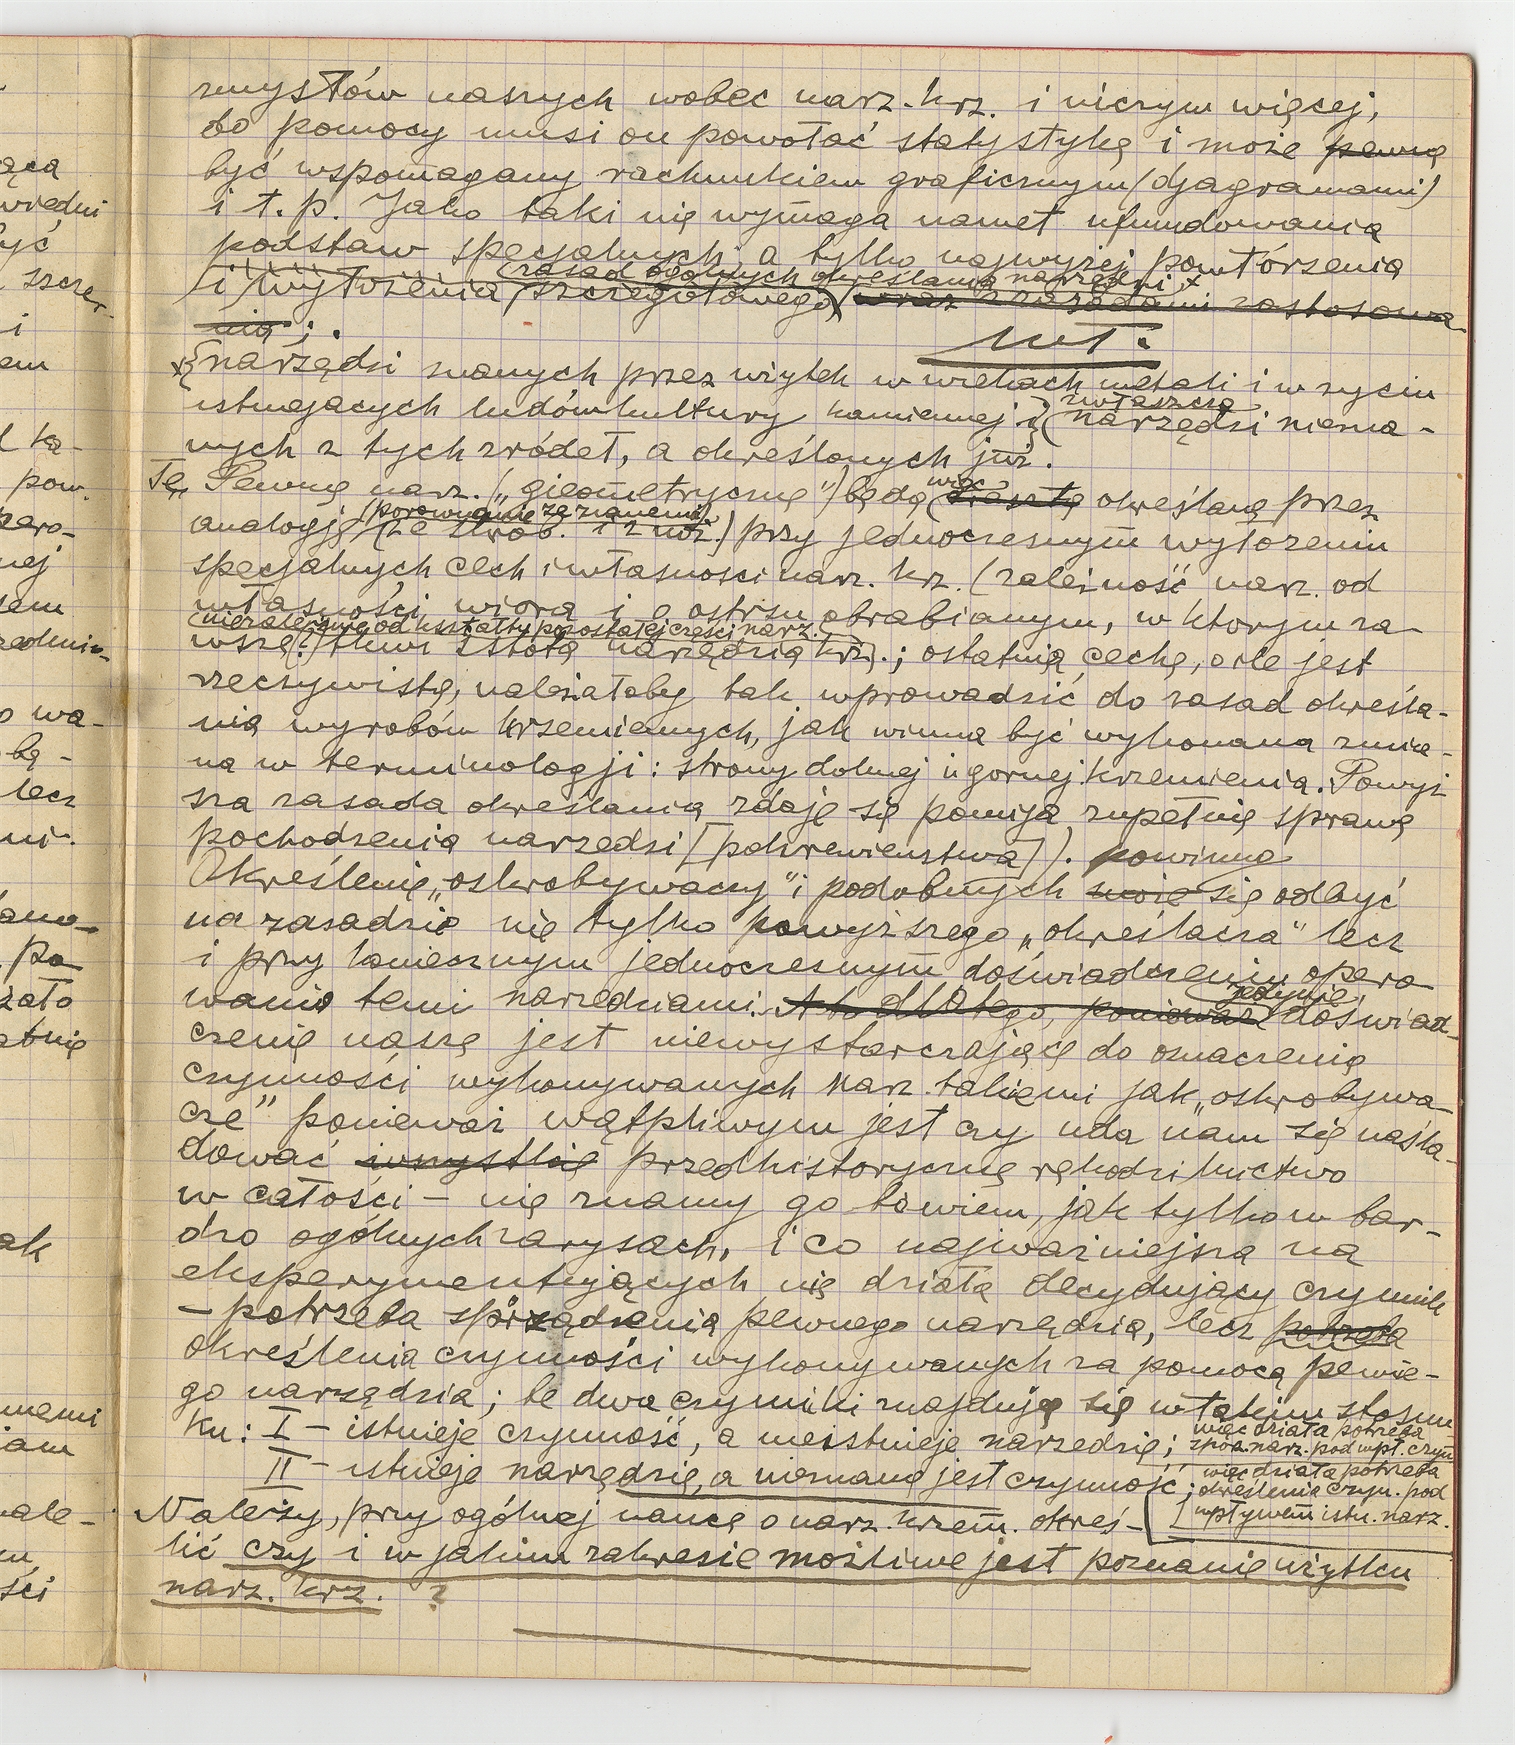 zmysłów naszych wobec narz. krz. i niczym więcej,
do pomocy musi on powołać statystykę i może pewną
być wspomagany rachunkiem graficznym (djagramami)
i t. p. Jako taki nie wymaga nawet ufundowania
podstaw specjalnych, a tylko najwyżej powtórzenia
(zasad ogólnych określania narzędzi x
i wyłożenia szczegółowego) wraz z zasadami zastosowa
nia; .
x{narzędzi znanych przez użytek w wiekach metali i w życiu
istniejących ludów kultury kamiennej i} (zwłaszcza narzędzi niezna-
nych z tych źródeł, a określonych już.
Te, Pewne narz. („gieometryczne") będą (więc zresztą określane przez
(porównanie ze znanemi)
analogję (ze skrob. i z noż.) przy jednoczesnym wyłożeniu
specjalnych cech i własności narz. krz. (zależność narz. od
własności wióra i o ostrzu obrabianym, w którym za-
(niezależnie od kształtu pozostałej części narz.
wsze (?) tkwi istota narzędzia krz.).; ostatnią cechę, o ile jest
rzeczywistą, należałoby tak wprowadzić do zasad określa-
nia wyrobów krzemiennych, jak winna być wykonana zmia-
na w terminologji: strony dolnej i górnej krzemienia. Powyż
sza zasada określania zdaje się pomija zupełnie sprawę
pochodzenia narzędzi [pokrewieństwa]). powinno
Określenie „oskrobywaczy" i podobnych może się odbyć
na zasadzie nie tylko powyższego „określacza" lecz
i przy koniecznym jednoczesnym doświadczeniu opero
wania temi narzędziami. A to dlatego, ponieważ (jedynie, doświad-
czenie nasze jest niewystarczające do oznaczenia
czynności wykonywanych narz. takiemi jak „oskrobywa-
cze" ponieważ wątpliwym jest czy uda nam się naśla-
dować wszystkie przedhistoryczne rękodzielnictwo
w całości – nie znamy go bowiem, jak tylko w bar-
dzo ogólnych zarysach, i co najważniejsza na
eksperymentujących nie działa decydujący czynnik
– potrzeba sporządzenia pewnego narzędzia, lecz potrzeba
określenia czynności wykonywanych za pomocą pewne-
go narzędzia; te dwa czynniki znajdują się w takim stosun-
ku: I – istnieje czynność, a nieistnieje narzędzie; więc działa potrzeba
sporz. narz. pod wpł. czyn.
II – istnieje narzędzie, a nieznaną jest czynność; więc działa potrzeba
określenia czyn. pod
wpływem istn. narz.
Należy, przy ogólnej nauce o narz. krzem. okreś-
lić czy i w jakim zakresie możliwe jest poznanie użytku
narz. krz. ?